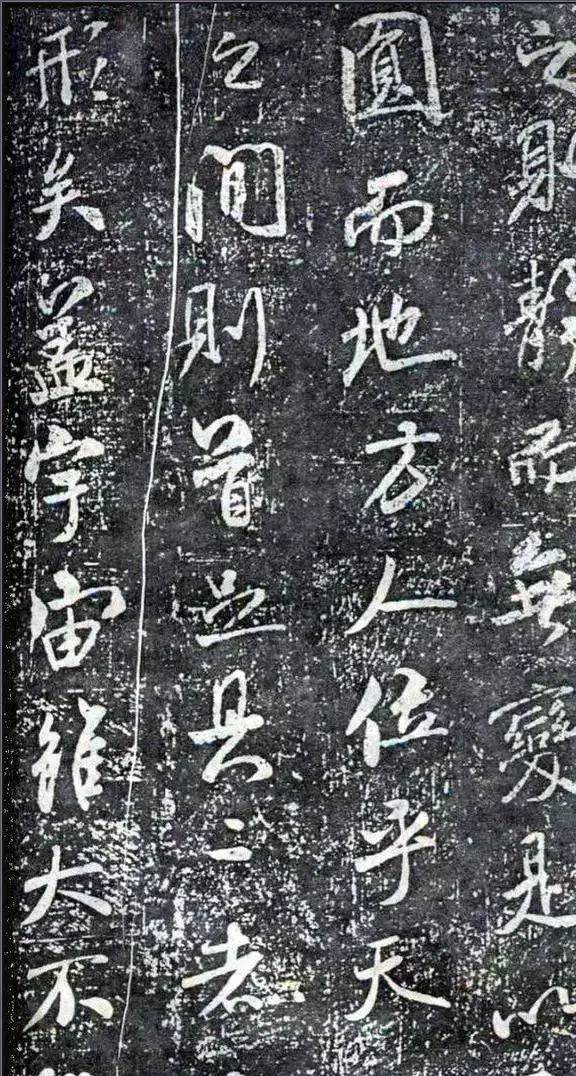 之則靜而無變是以
圓而地方人位乎天
之間則首並具二者
形矣蓋宇宙雖大不